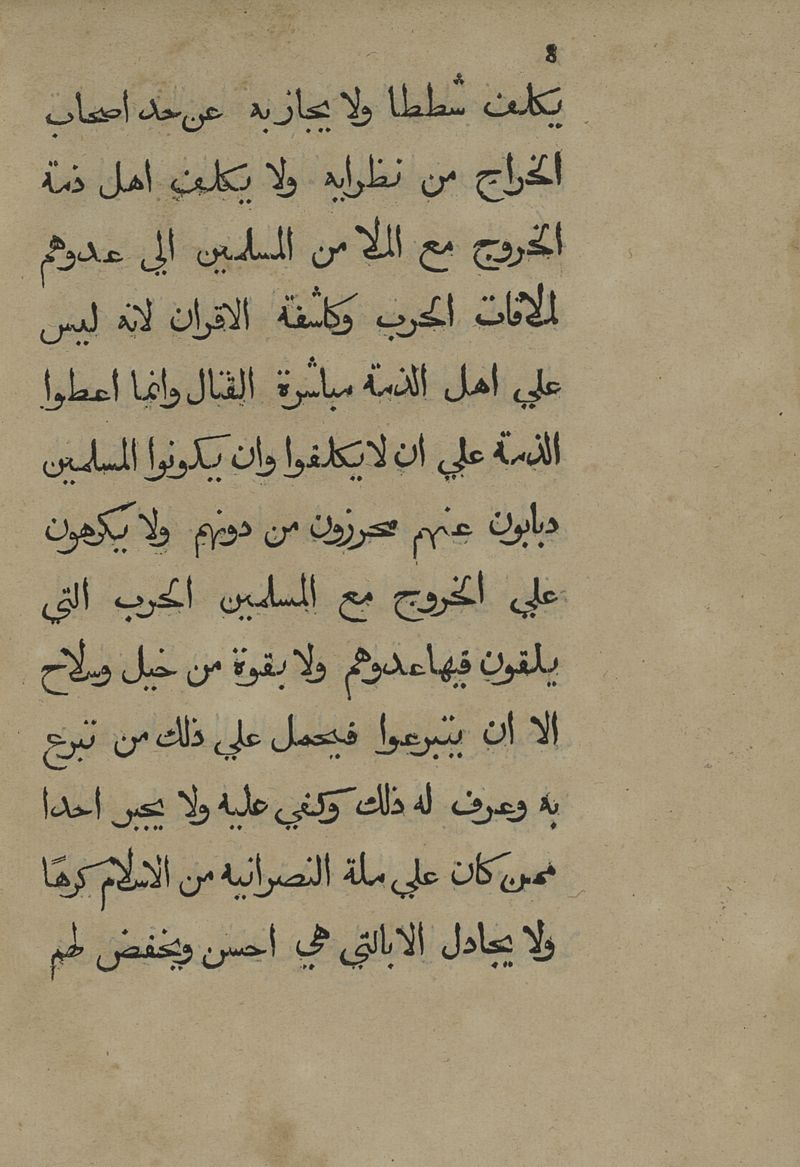 8
يكلف شططا ولا يجاز به عن حد اصحاب
الخراج من نظرايه ولا يكلف اهل ذمة
الخروج مع الملا من المسلمين الي عدوهم
لملاقات الحرب وكاشفة الاقران لانه ليس
علي اهل الذمة مباشرة القتال وانما اعطوا
الذمة علي ان لا يكلفوا وان يكونوا المسلمين
دبابون عنهم محرزون من دونهم ولا يكرهون
علي الخروج مع المسلمين الحرب التي
يلقون فيها عدوهم ولا بقوة من خيل وسلاح
الا ان يتبرعوا فيحمل علي ذلك من تبرع
به وعرف له ذلك وكفي عليه ولا يجبر احدا
ممن كان علي ملة النصرانيه من الاسلام كرها
ولا يجادل الا بالتي هي احسن ويخفض لهم